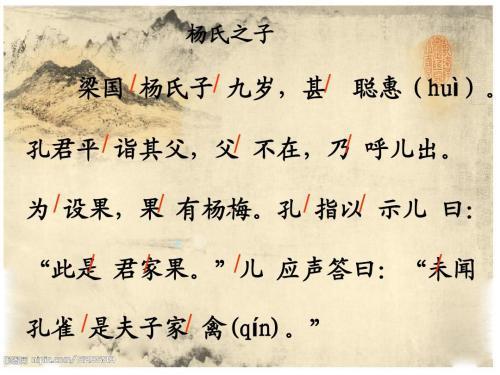 杨氏之子
梁国/杨氏子/九岁，甚/聪惠（huì）。
孔君平/诣其父，父/不在，乃/呼儿出。
为/设果，果/有杨梅。孔/指以/示儿/曰：
“此是/君家果。”/儿/应声答曰：“未闻
孔雀/是夫子家/禽(qín)。”